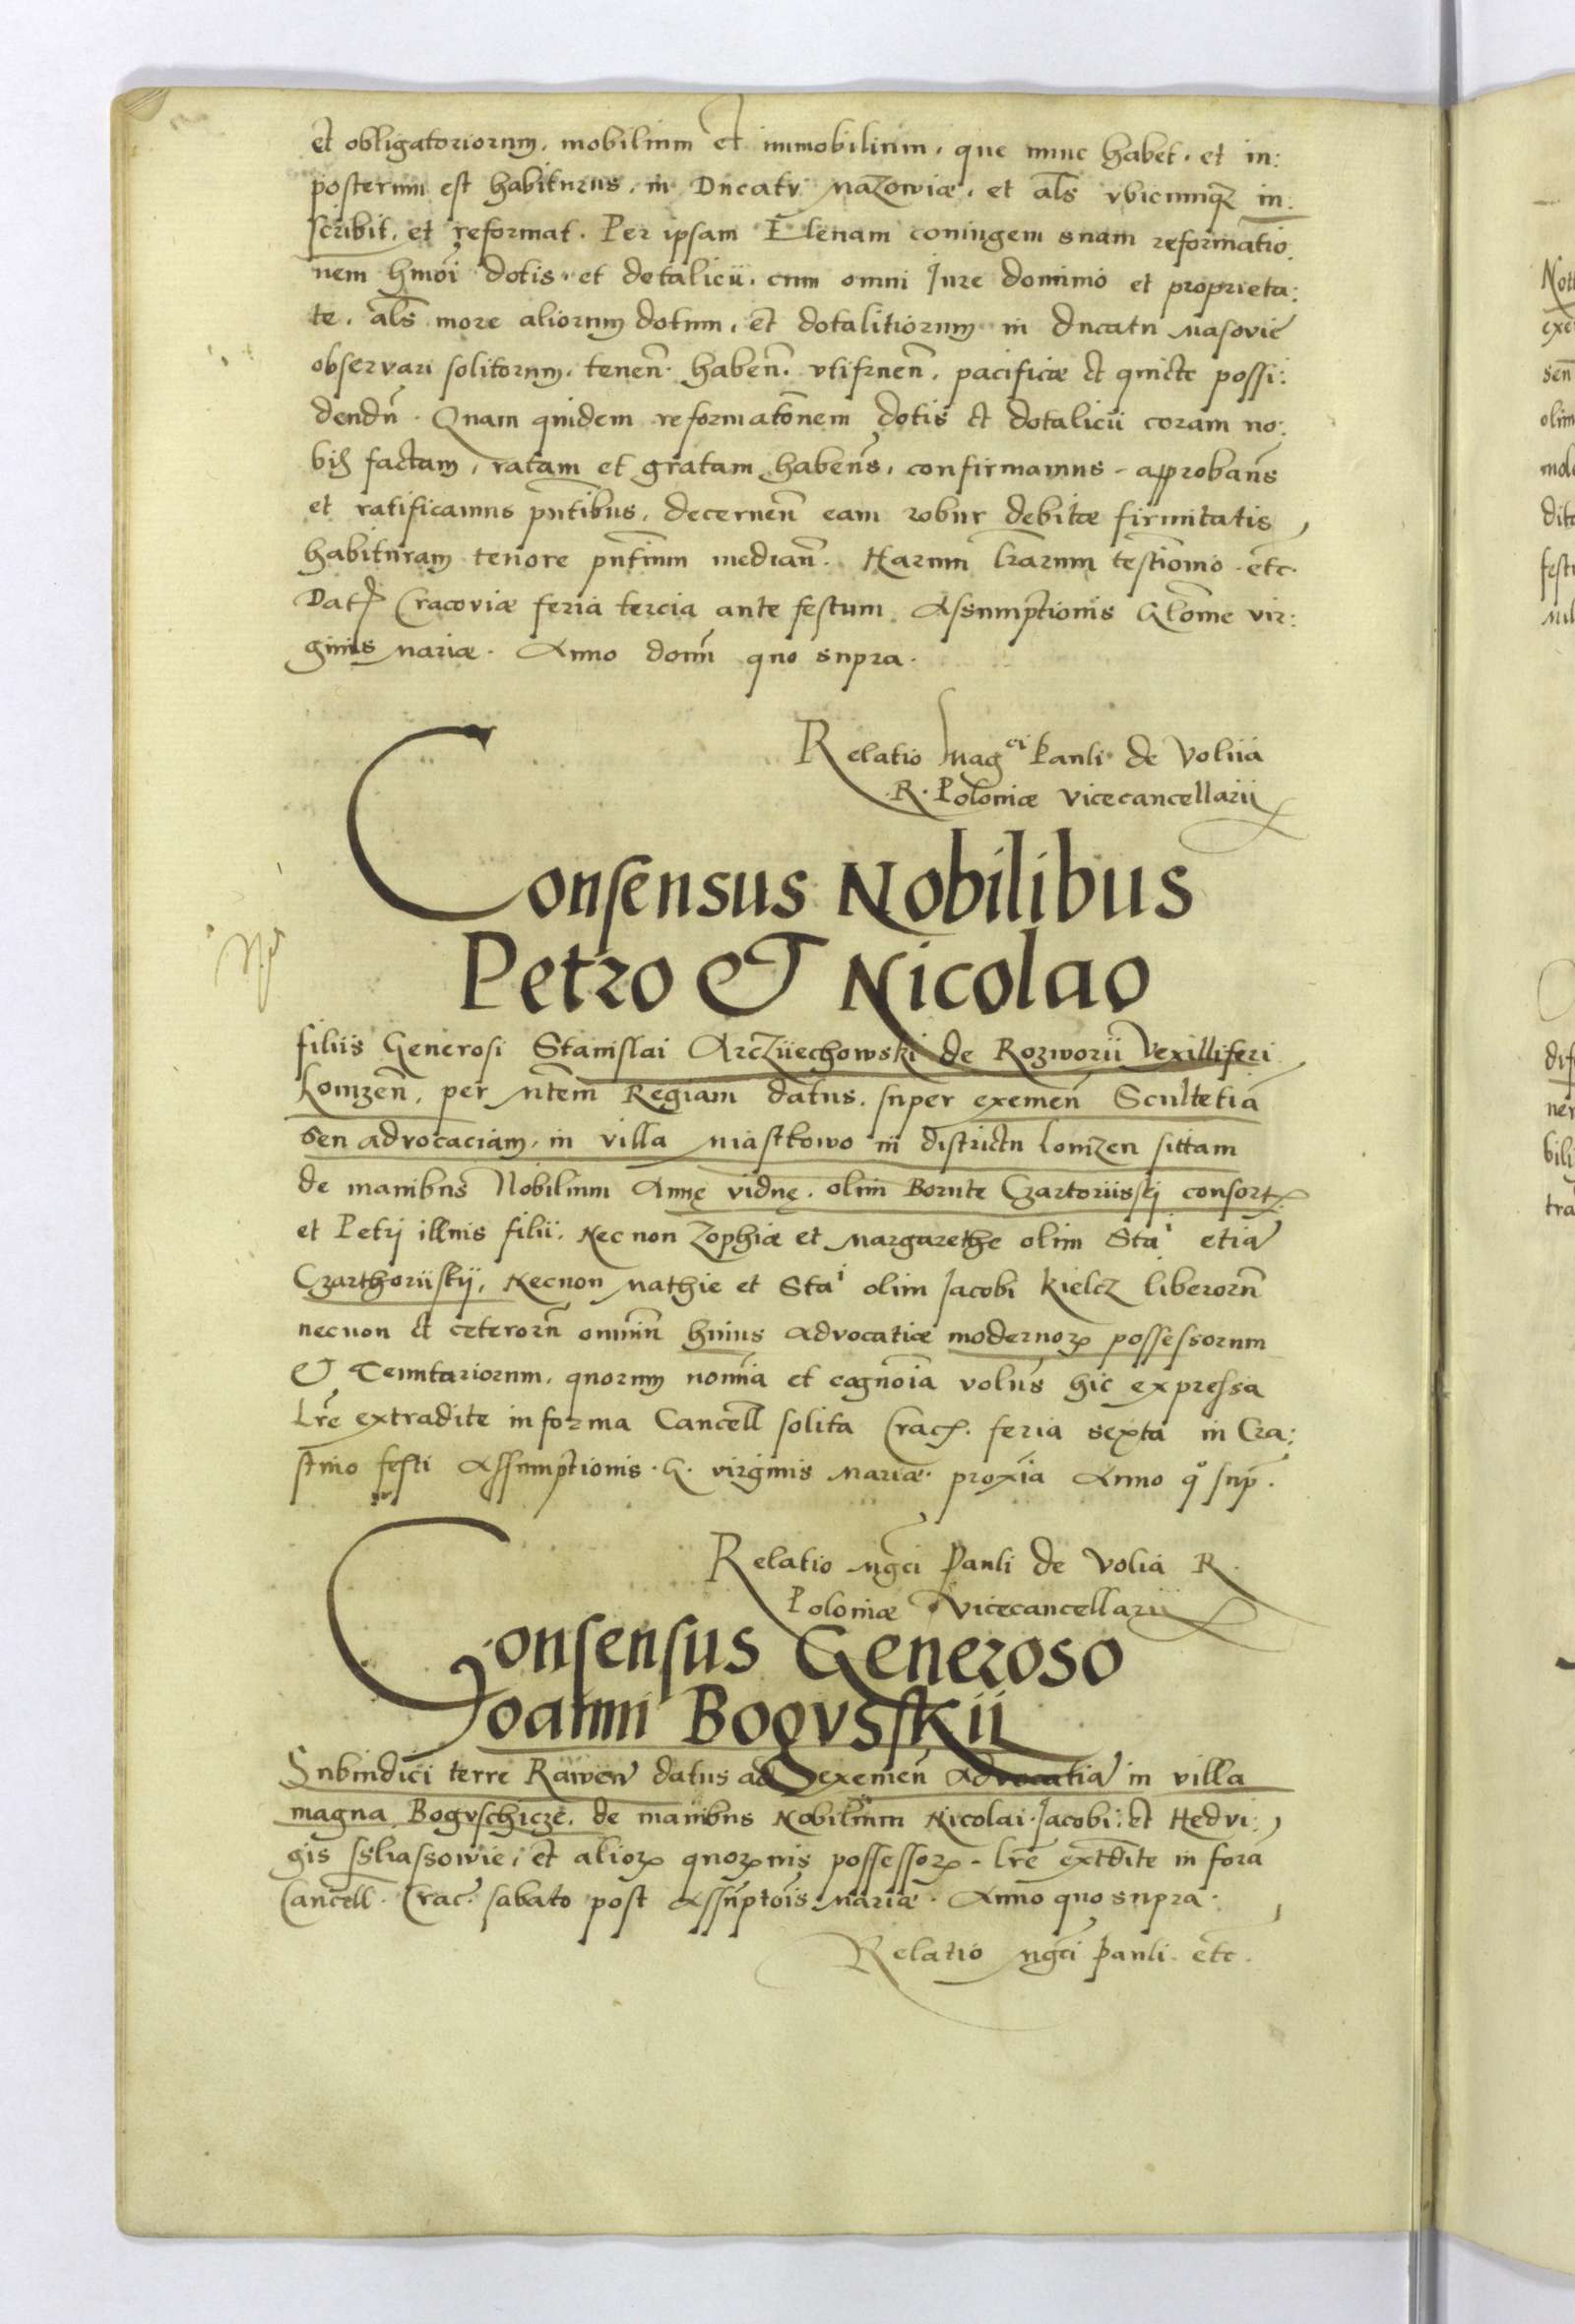 et obligatoriorum, mobilium et immobilium, que nunc habet, et in:
posterum est habiturus, in Ducatu Mazowiæ, et al̄s vbicumq; in:
scribit, et reformat. Per ipsam Elenam coniugem suam reformatio
nem hmōi dotis et dotalicii, cum omni Jure dominio et proprieta:
te, al̄s more aliorum dotum, et dotalitiorum in ducatu Masovie
observari solitorum, tenen̄. haben̄. vtifruen̄, pacificæ et quiete possi:
dendū. Quam quidem reformatōnem dotis et dotalicii coram no:
bis factam, ratam et gratam haben̄s, confirmamus, approban̄s
et ratificamus pn̄tibus, decernen̄ eam robur debitæ firmitatis
habituram tenore pn̄tium median̄. Harum lr̄arum testīonio etc.
Dat Cracoviæ feria tercia ante festum Assumptionis Glōse vir:
ginis Mariæ. Anno domī quo supra.
Relatio Magci Pauli de Voliia
R. Poloniæ Vicecancellarii
Consensus Nobilibus
Petro et Nicolao
filiis Generosi Stanislai Arcziiechowski de Rozworii Vexilliferi
Lomzen̄, per Mtem Regiam datus, super exemen̄ Scultetiā
seu advocaciam, in villa Miastkowo in districtu Lomzen sittam
de manibus Nobilium Annę viduę olim Borute Czartoriisskj consort
et Petrj illius filii, Nec non Zophiæ et Margarethe olim Stai etiā
Czarthoriiskij, Necnon Mathie et Stai olim Jacobi Kielcz liberorū
necnon et ceterorū omniū huius Advocatiæ modernorꝝ possessorum
Et Tenutariorum, quorum nomīa et cagnōia volūs hic expressa
Lr̄e extradite in forma Cancell solita Crac. feria sexta in Cra:
stino festi Assumptionis G. virginis Mariæ proxīa Anno qo sup.
Relatio Mgci Pauli de Volia R.
Poloniæ Vicecancellarii
Consensus Generoso
Joanni Boguskii
Subiudici terre Rawen̄ datus ad exemen̄ Advocatiā in villa
magna Boguschicze, de manibus Nobilium Nicolai Jacobi et Hedvi:
gis Ssliassowie, et aliorꝝ quorꝝvis possessorꝝ. Lr̄e extrdite in fora
Cancell. Crac. sabato post Assūptōis Mariæ. Anno quo supra.
Relatio Mgci Pauli etc.